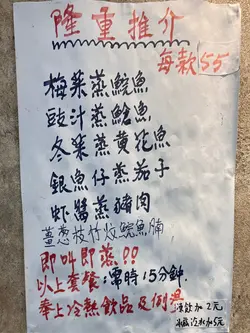 隆重推介
每款55
梅菜蒸鯇魚
豉汁蒸鯰魚
冬菜蒸黃花魚
銀魚仔蒸茄子
虾醬蒸豬肉
薑葱枝竹炆鯇魚腩
即叫即蒸!!
以上套餐:需時15分鐘.
奉上冷熱飲品及例湯
凍飲加2元
樽汽水加5元